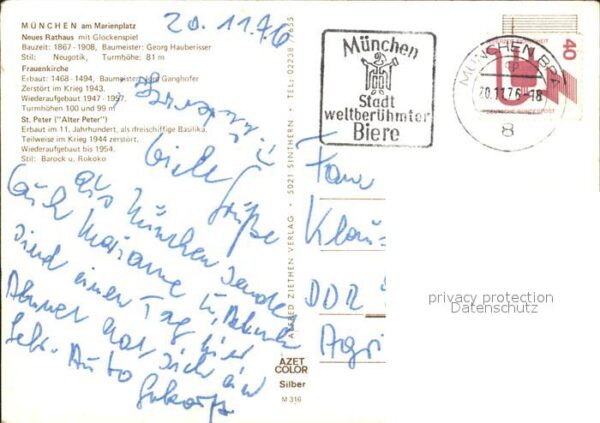 MÜNCHEN am Marienplatz
Neues Rathaus mit Glockenspiel
Bauzeit: 1867 - 1908, Baumeister: Georg Hauberisser
Stil: Neugotik, Turmhöhe: 81 m
Frauenkirche
Erbaut: 1468 - 1494, Baumeister: Ganghofer
Zerstört im Krieg 1943.
Wiederaufgebaut 1947 - 1957.
Turmhöhen 100 und 99 m
St. Peter ("Alter Peter")
Erbaut im 11. Jahrhundert, als dreischiffige Basilika.
Teilweise im Krieg 1944 zerstört.
Wiederaufgebaut bis 1954.
Stil: Barock u. Rokoko
20.11.76
viele Grüße
aus München sendet
Euch Marianne u.
sind einen Tag hier
hat sich ein
Auto gekauft.
ALFRED ZIETHEN VERLAG · 5021 SINTHERN · TEL. 02238
AZET
COLOR
Silber
M 316
München
Stadt
weltberühmter
Biere
MÜNCHEN
20.11.76-18
8
40
DEUTSCHE BUNDESPOST
Fam
Klau
DDR
Agri
privacy protection
Datenschutz